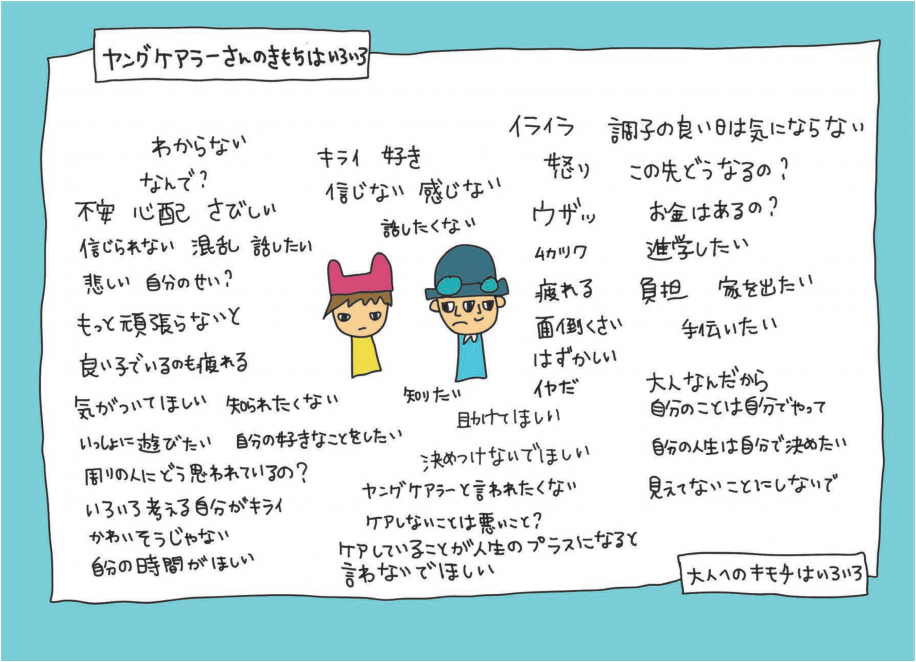 ヤングケアラーさんのきもちはいろいろ
わからない
なんで？
不安 心配 さびしい
信じられない 混乱 話したい
悲しい 自分のせい？
もっと頑張らないと
良い子でいるのも疲れる
気がついてほしい 知られたくない
いっしょに遊びたい 自分の好きなことをしたい
周りの人にどう思われているの？
いろいろ考える自分がキライ
かわいそうじゃない
自分の時間がほしい
キライ 好き
信じない 感じない
話したくない
知りたい
助けてほしい
決めつけないでほしい
ヤングケアラーと言われたくない
ケアしないことは悪いこと？
ケアしていることが人生のプラスになると
言わないでほしい
イライラ
怒り
ウザッ
ムカツク
疲れる
面倒くさい
はずかしい
イヤだ
調子の良い日は気にならない
この先どうなるの？
お金はあるの？
進学したい
負担 家を出たい
手伝いたい
大人なんだから
自分のことは自分でやって
自分の人生は自分で決めたい
見えてないことにしないで
大人へのキモチはいろいろ